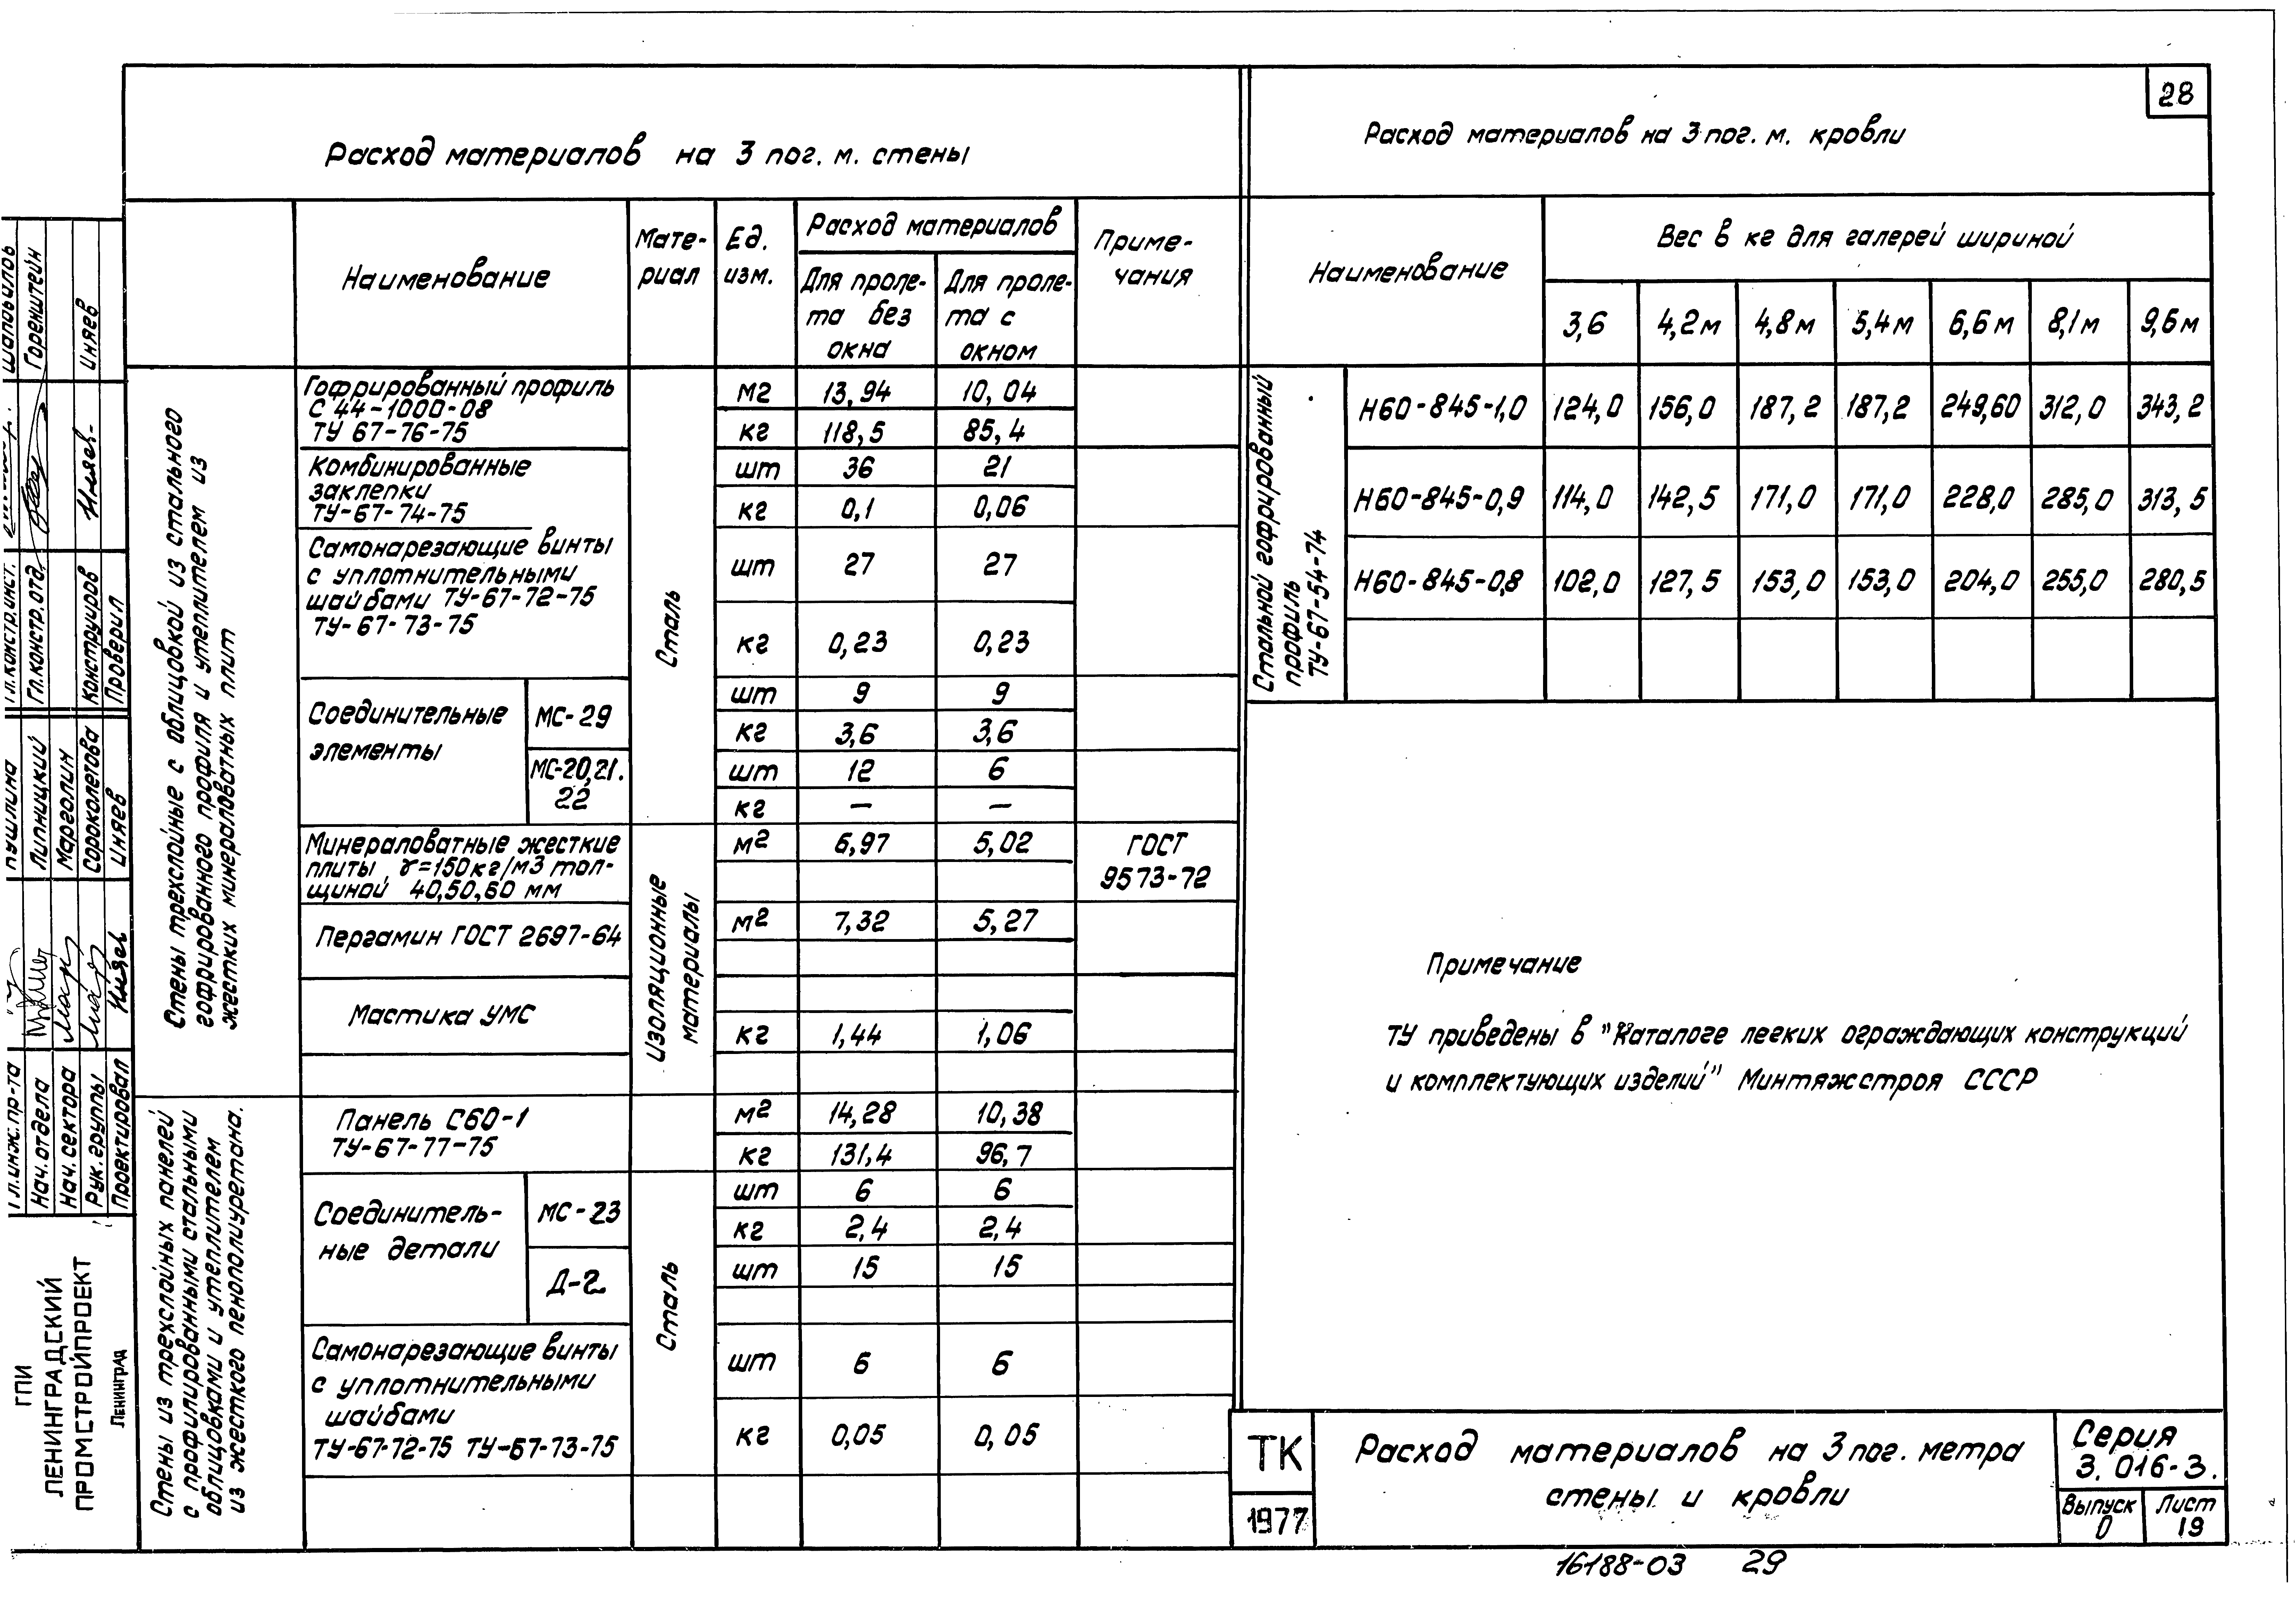 28
Расход материалов на 3 пог. м. стены
Наименование
Мате-
риал
Ед.
изм.
Расход материалов
Для проле-
та без
окна
Для проле-
та с
окном
Приме-
чания
Стены трехслойные с облицовкой из стального
гофрированного профиля и утеплителем из
жестких минераловатных плит
Гофрированный профиль
С 44-1000-08
ТУ 67-76-75
Сталь
м2 13,94 10,04
кг 118,5 85,4
Комбинированные
заклепки
ТУ-67-74-75
шт 36 21
кг 0,1 0,06
Самонарезающие винты
с уплотнительными
шайбами ТУ-67-72-75
ТУ-67-73-75
шт 27 27
кг 0,23 0,23
Соединительные
элементы
МС-29
шт 9 9
кг 3,6 3,6
МС-20,21.
22
шт 12 6
кг — —
Минераловатные жесткие
плиты, γ=150кг/м3 тол-
щиной 40,50,60 мм
Изоляционные
материалы
м2 6,97 5,02
ГОСТ
9573-72
Пергамин ГОСТ 2697-64
м2 7,32 5,27
Мастика УМС
кг 1,44 1,06
Стены из трехслойных панелей
с профилированными стальными
облицовками и утеплителем
из жесткого пенополиуретана.
Панель С60-1
ТУ-67-77-75
м2 14,28 10,38
кг 131,4 96,7
Соединитель-
ные детали
МС-23
Сталь
шт 6 6
кг 2,4 2,4
Д-2
шт 15 15
Самонарезающие винты
с уплотнительными
шайбами
ТУ-67-72-75 ТУ-67-73-75
шт 6 6
кг 0,05 0,05
Расход материалов на 3 пог. м. кровли
Наименование
Вес в кг для галерей шириной
3,6 4,2м 4,8м 5,4м 6,6м 8,1м 9,6м
Стальной гофрированный
профиль
ТУ-67-54-74
Н60-845-1,0 124,0 156,0 187,2 187,2 249,60 312,0 343,2
Н60-845-0,9 114,0 142,5 171,0 171,0 228,0 285,0 313,5
Н60-845-0,8 102,0 127,5 153,0 153,0 204,0 255,0 280,5
Примечание
ТУ приведены в "Каталоге легких ограждающих конструкций
и комплектующих изделий" Минтяжстроя СССР
ТК
1977
Расход материалов на 3 пог. метра
стены и кровли
Серия
3.016-3.
Выпуск
0
Лист
19
16188-03 29
Гл.инж.пр-та Пушлина
Нач.отдела Липницкий
Нач.сектора Марголин
Рук.группы Сорококлетова
Проектировал Иняев
Гл.констр.инст. Шаповалов
Гл.констр.отд. Горенштейн
Конструиров Иняев
Проверил
ГПИ
ЛЕНИНГРАДСКИЙ
ПРОМСТРОЙПРОЕКТ
Ленинград